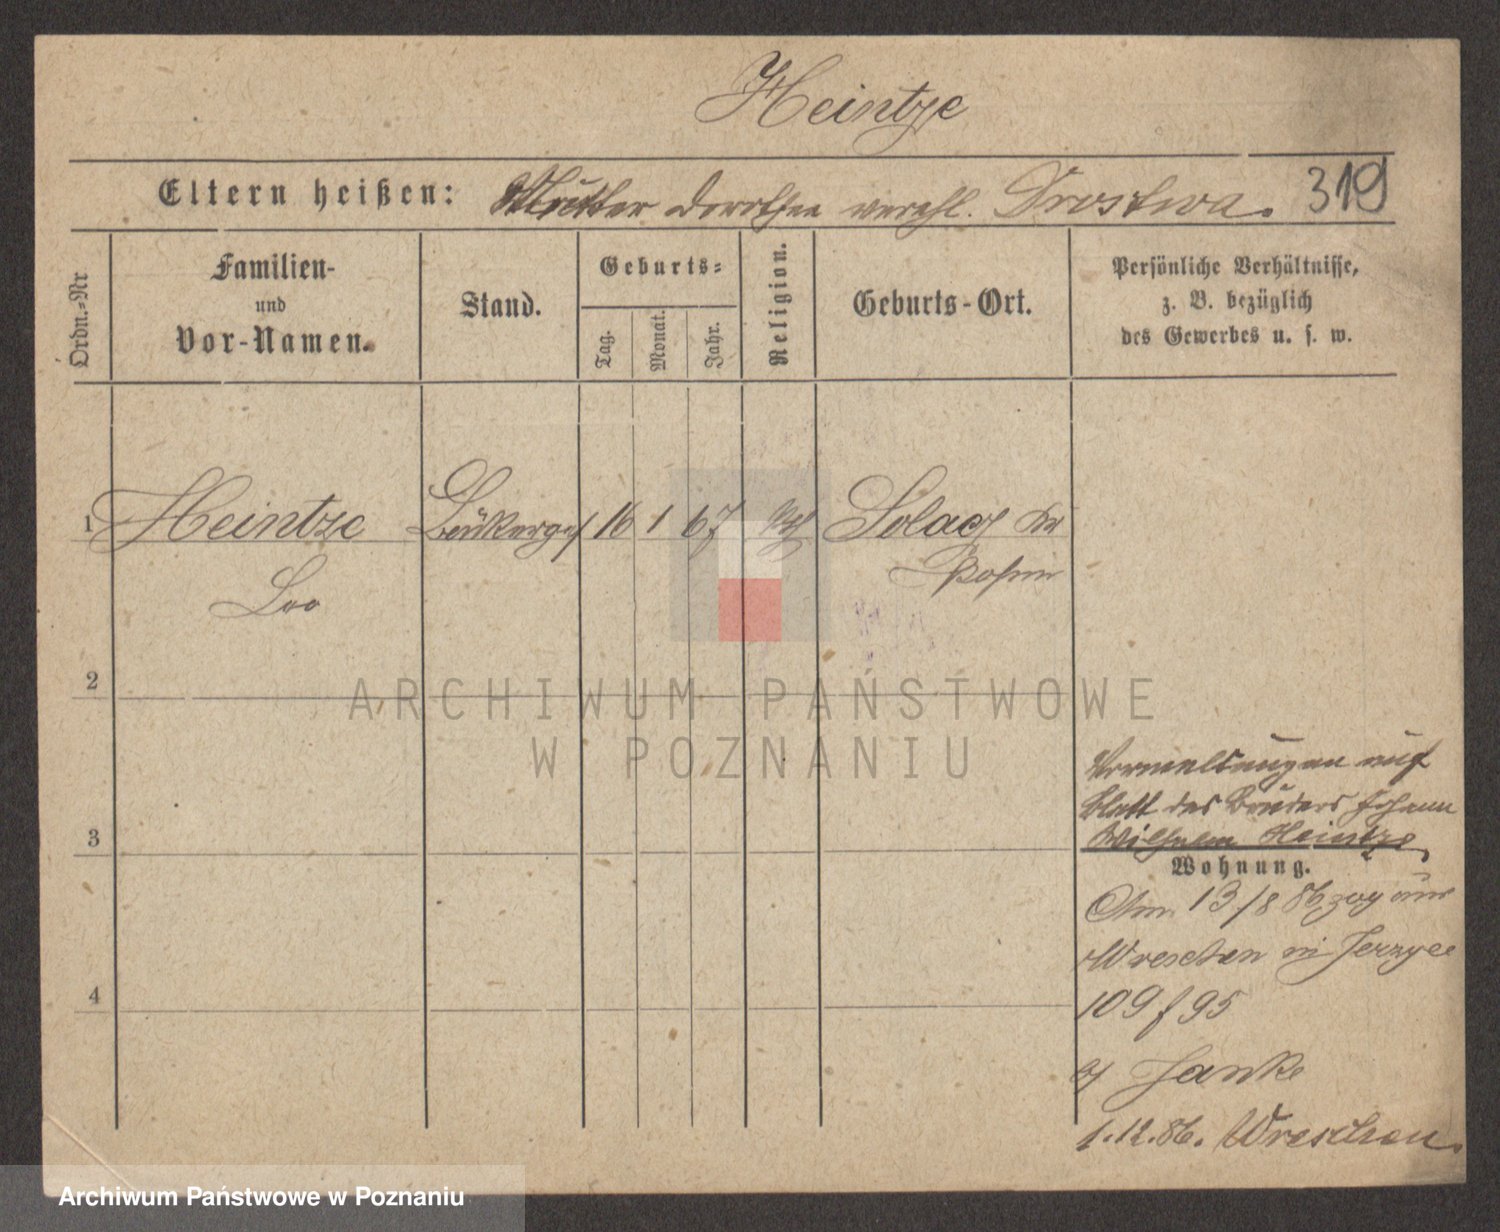 Heintze
Eltern heißen: Mutter Dorothea verehl. Drostwa. 319
Ordn.-Nr
Familien-
und
Vor-Namen.
Stand.
Geburts-
Tag.
Monat.
Jahr.
Religion.
Geburts-Ort.
Persönliche Verhältnisse,
z. B. bezüglich
des Gewerbes u. s. w.
1 Heintze Bäckerges 16 1 67 Solacz Kr
Leo Posen
2
3
4
Vormeldungen auf
Blatt des Bruders Johann
Wilhelm Heintze
Wohnung.
Am 13/8 86 zog aus
Wreschen in Jerzyce
109 f 95
Janke
1.12.86. Wreschen.
ARCHIWUM PAŃSTWOWE
W POZNANIU
Archiwum Państwowe w Poznaniu